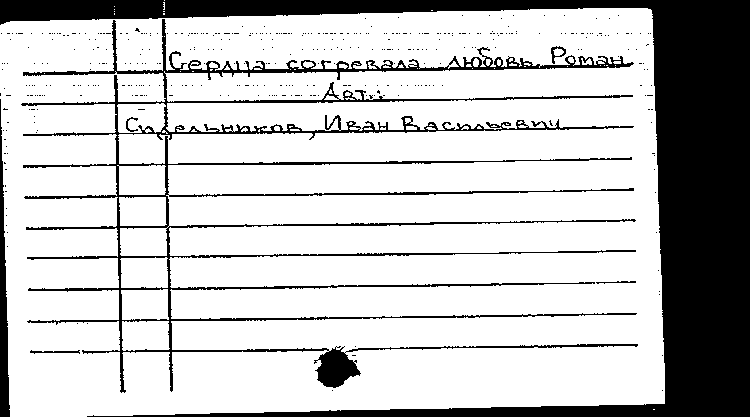 Сердца согревала любовь. Роман
Авт.:
Сидельников, Иван Васильевич